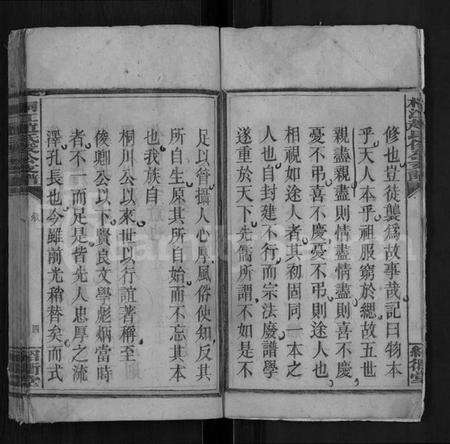 修也豈徒襲爲故事哉記曰物本
乎天人本乎祖服窮於緦故五世
親盡親盡則情盡情盡則喜不慶
憂不弔喜不慶憂不弔則途人也
相視如途人者其初固同一本之
人也自封建不行而宗法廢譜學
遂重於天下先儒所謂不如是不
足以管攝人心厚風俗使知反其
所自生原其所自始而不忘其本
也我族自
桐川公以來世以行誼著稱至
俊卿公以下賢良文學彪炳當時
者不一而足是皆先人忠厚之流
澤孔長也今雖前光稍替矣而式
四